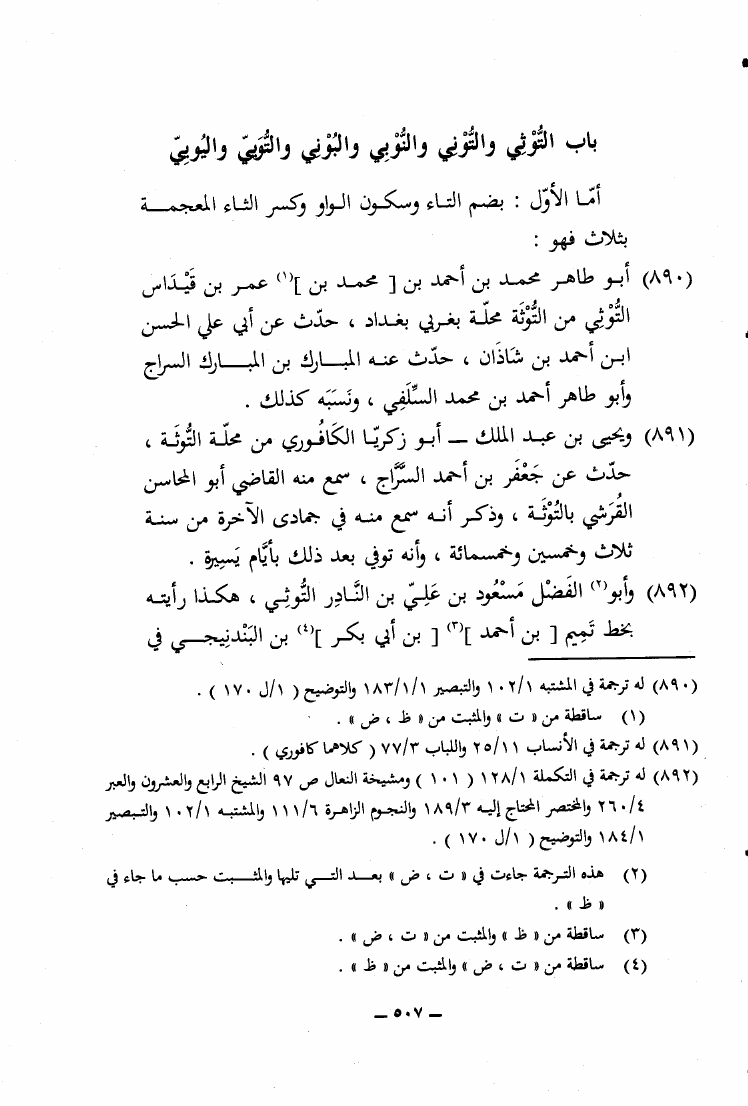 باب التُّوْثِي والتُّوْنِي والنُّوْبِي والبُوْنِي والتُّوَيِيّ واليُوبِيّ
أمّا الأوّل : بضم التاء وسكون الواو وكسر الثاء المعجمة
بثلاث فهو :
(٨٩٠) أبو طاهر محمد بن أحمد بن [ محمد بن ](١) عمر بن قَيْدَاس
التُّوْثِي من التُّوْثَة محلّة بغربي بغداد ، حدّث عن أبي علي الحسن
ابن أحمد بن شَاذَان ، حدّث عنه المبارك بن المبارك السراج
وأبو طاهر أحمد بن محمد السِّلَفِي ، ونَسَبَه كذلك .
(٨٩١) ويحيى بن عبد الملك — أبو زكريّا الكَافُوري من محلّة التُّوثَة ،
حدّث عن جَعْفَر بن أحمد السَّرَّاج ، سمع منه القاضي أبو المحاسن
القُرَشي بالتُوْثَة ، وذكر أنه سمع منه في جمادى الآخرة من سنة
ثلاث وخمسين وخمسمائة ، وأنه توفي بعد ذلك بأيَّام يَسِيرة .
(٨٩٢) وأبو(٢) الفَضْل مَسْعُود بن عَلِيّ بن النَّادِر التُّوثِي ، هكذا رأيته
بخط تَمِيم [ بن أحمد ](٣) [ بن أبي بكر ](٤) بن البَنْدنِيجي في
(٨٩٠) له ترجمة في المشتبه ١٠٢/١ والتبصير ١٨٣/١/١ والتوضيح ( ١/ل ١٧٠ ) .
(١) ساقطة من « ت » والمثبت من « ظ ، ض » .
(٨٩١) له ترجمة في الأنساب ٢٥/١١ واللباب ٧٧/٣ ( كلاهما كافوري ) .
(٨٩٢) له ترجمة في التكملة ١٢٨/١ ( ١٠١ ) ومشيخة النعال ص ٩٧ الشيخ الرابع والعشرون والعبر
٢٦٠/٤ والمختصر المحتاج إليه ١٨٩/٣ والنجوم الزاهرة ١١١/٦ والمشتبه ١٠٢/١ والتبصير
١٨٤/١ والتوضيح ( ١/ل ١٧٠ ) .
(٢) هذه الترجمة جاءت في « ت ، ض » بعد التي تليها والمثبت حسب ما جاء في
« ظ » .
(٣) ساقطة من « ظ » والمثبت من « ت ، ض » .
(٤) ساقطة من « ت ، ض » والمثبت من « ظ » .
— ٥٠٧ —